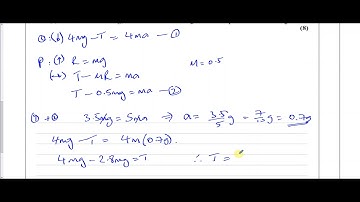 (8)
Q: (↓) 4mg - T = 4ma — ①
P: (↑) R = mg    μ = 0.5
(→) T - μR = ma
T - 0.5mg = ma — ②
① + ② 3.5mg = 5ma ⇒ a = 3.5/5 g = 7/10 g = 0.7g
4mg - T = 4m(0.7g)
4mg - 2.8mg = T    ∴ T =